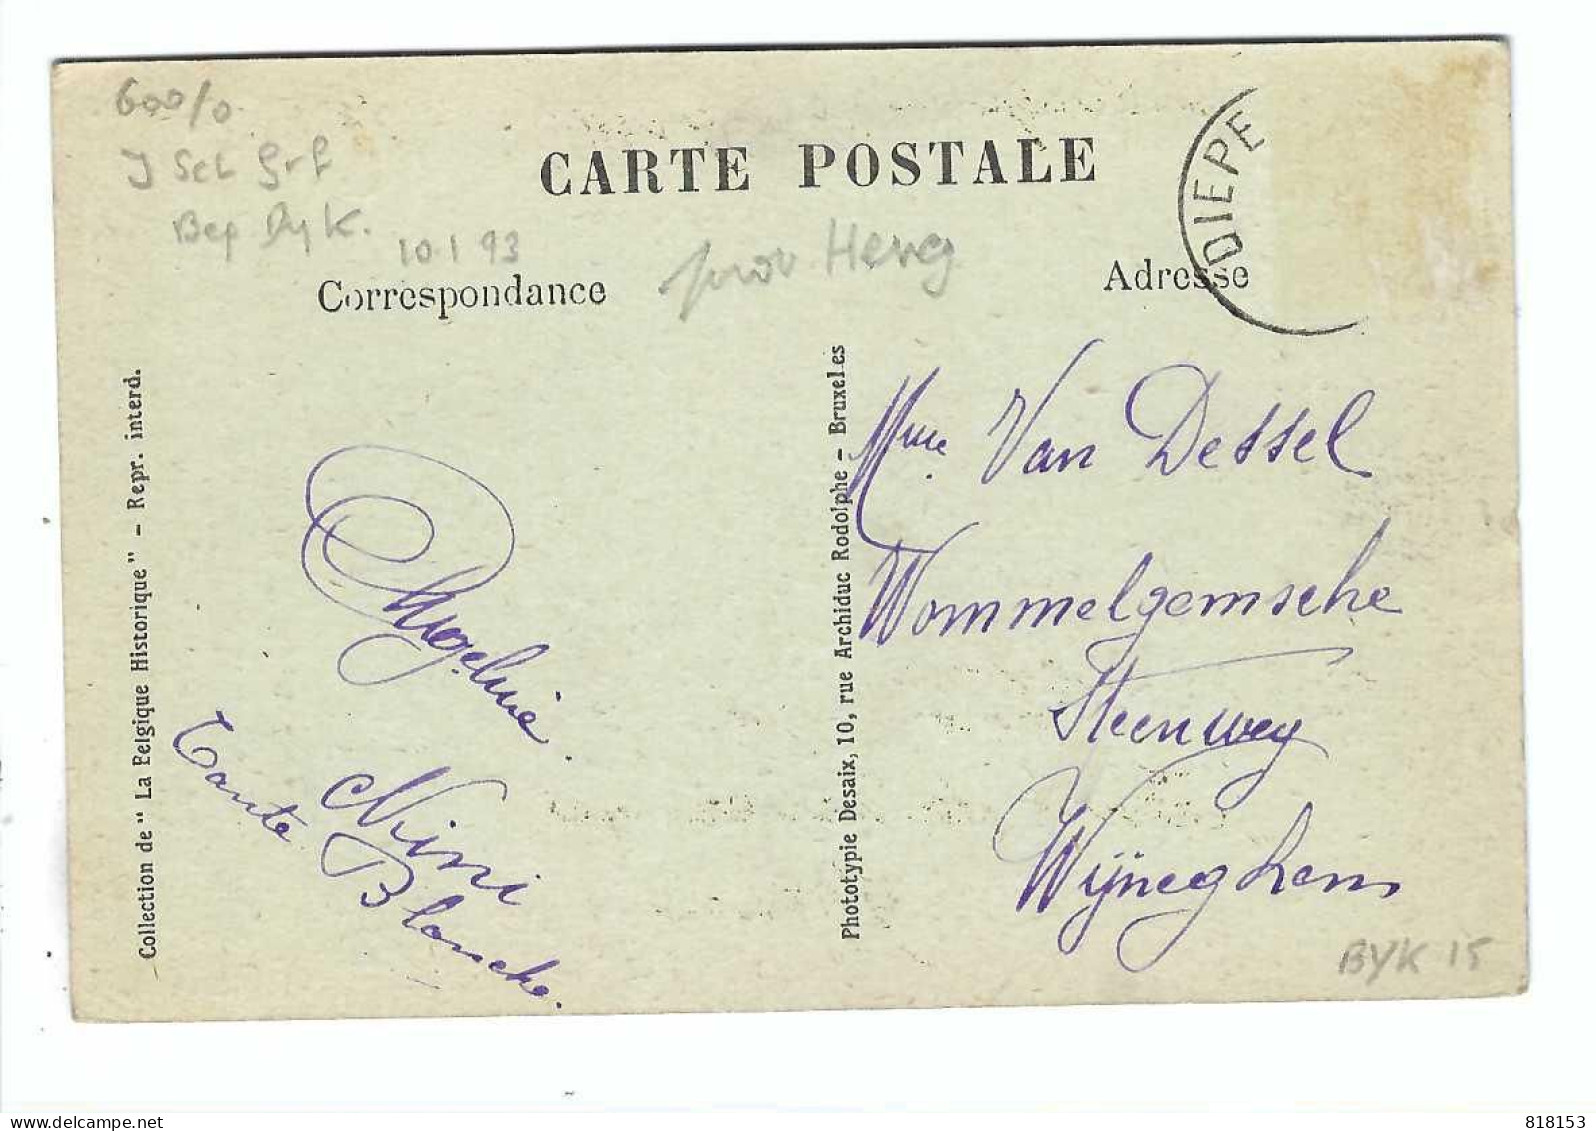 600/0
J Sch
Bep Dyk.
10.1.93
CARTE POSTALE
DIEPE
Correspondance
Adresse
Collection de " La Belgique Historique " - Repr. interd.
Phototypie Desaix, 10, rue Archiduc Rodolphe - Bruxelles
Angelinie.
Nini
Tante Blanche.
Mme. Van Dessel
Wommelgemsche
Steenweg
Wÿneghem
BYK 15
818153